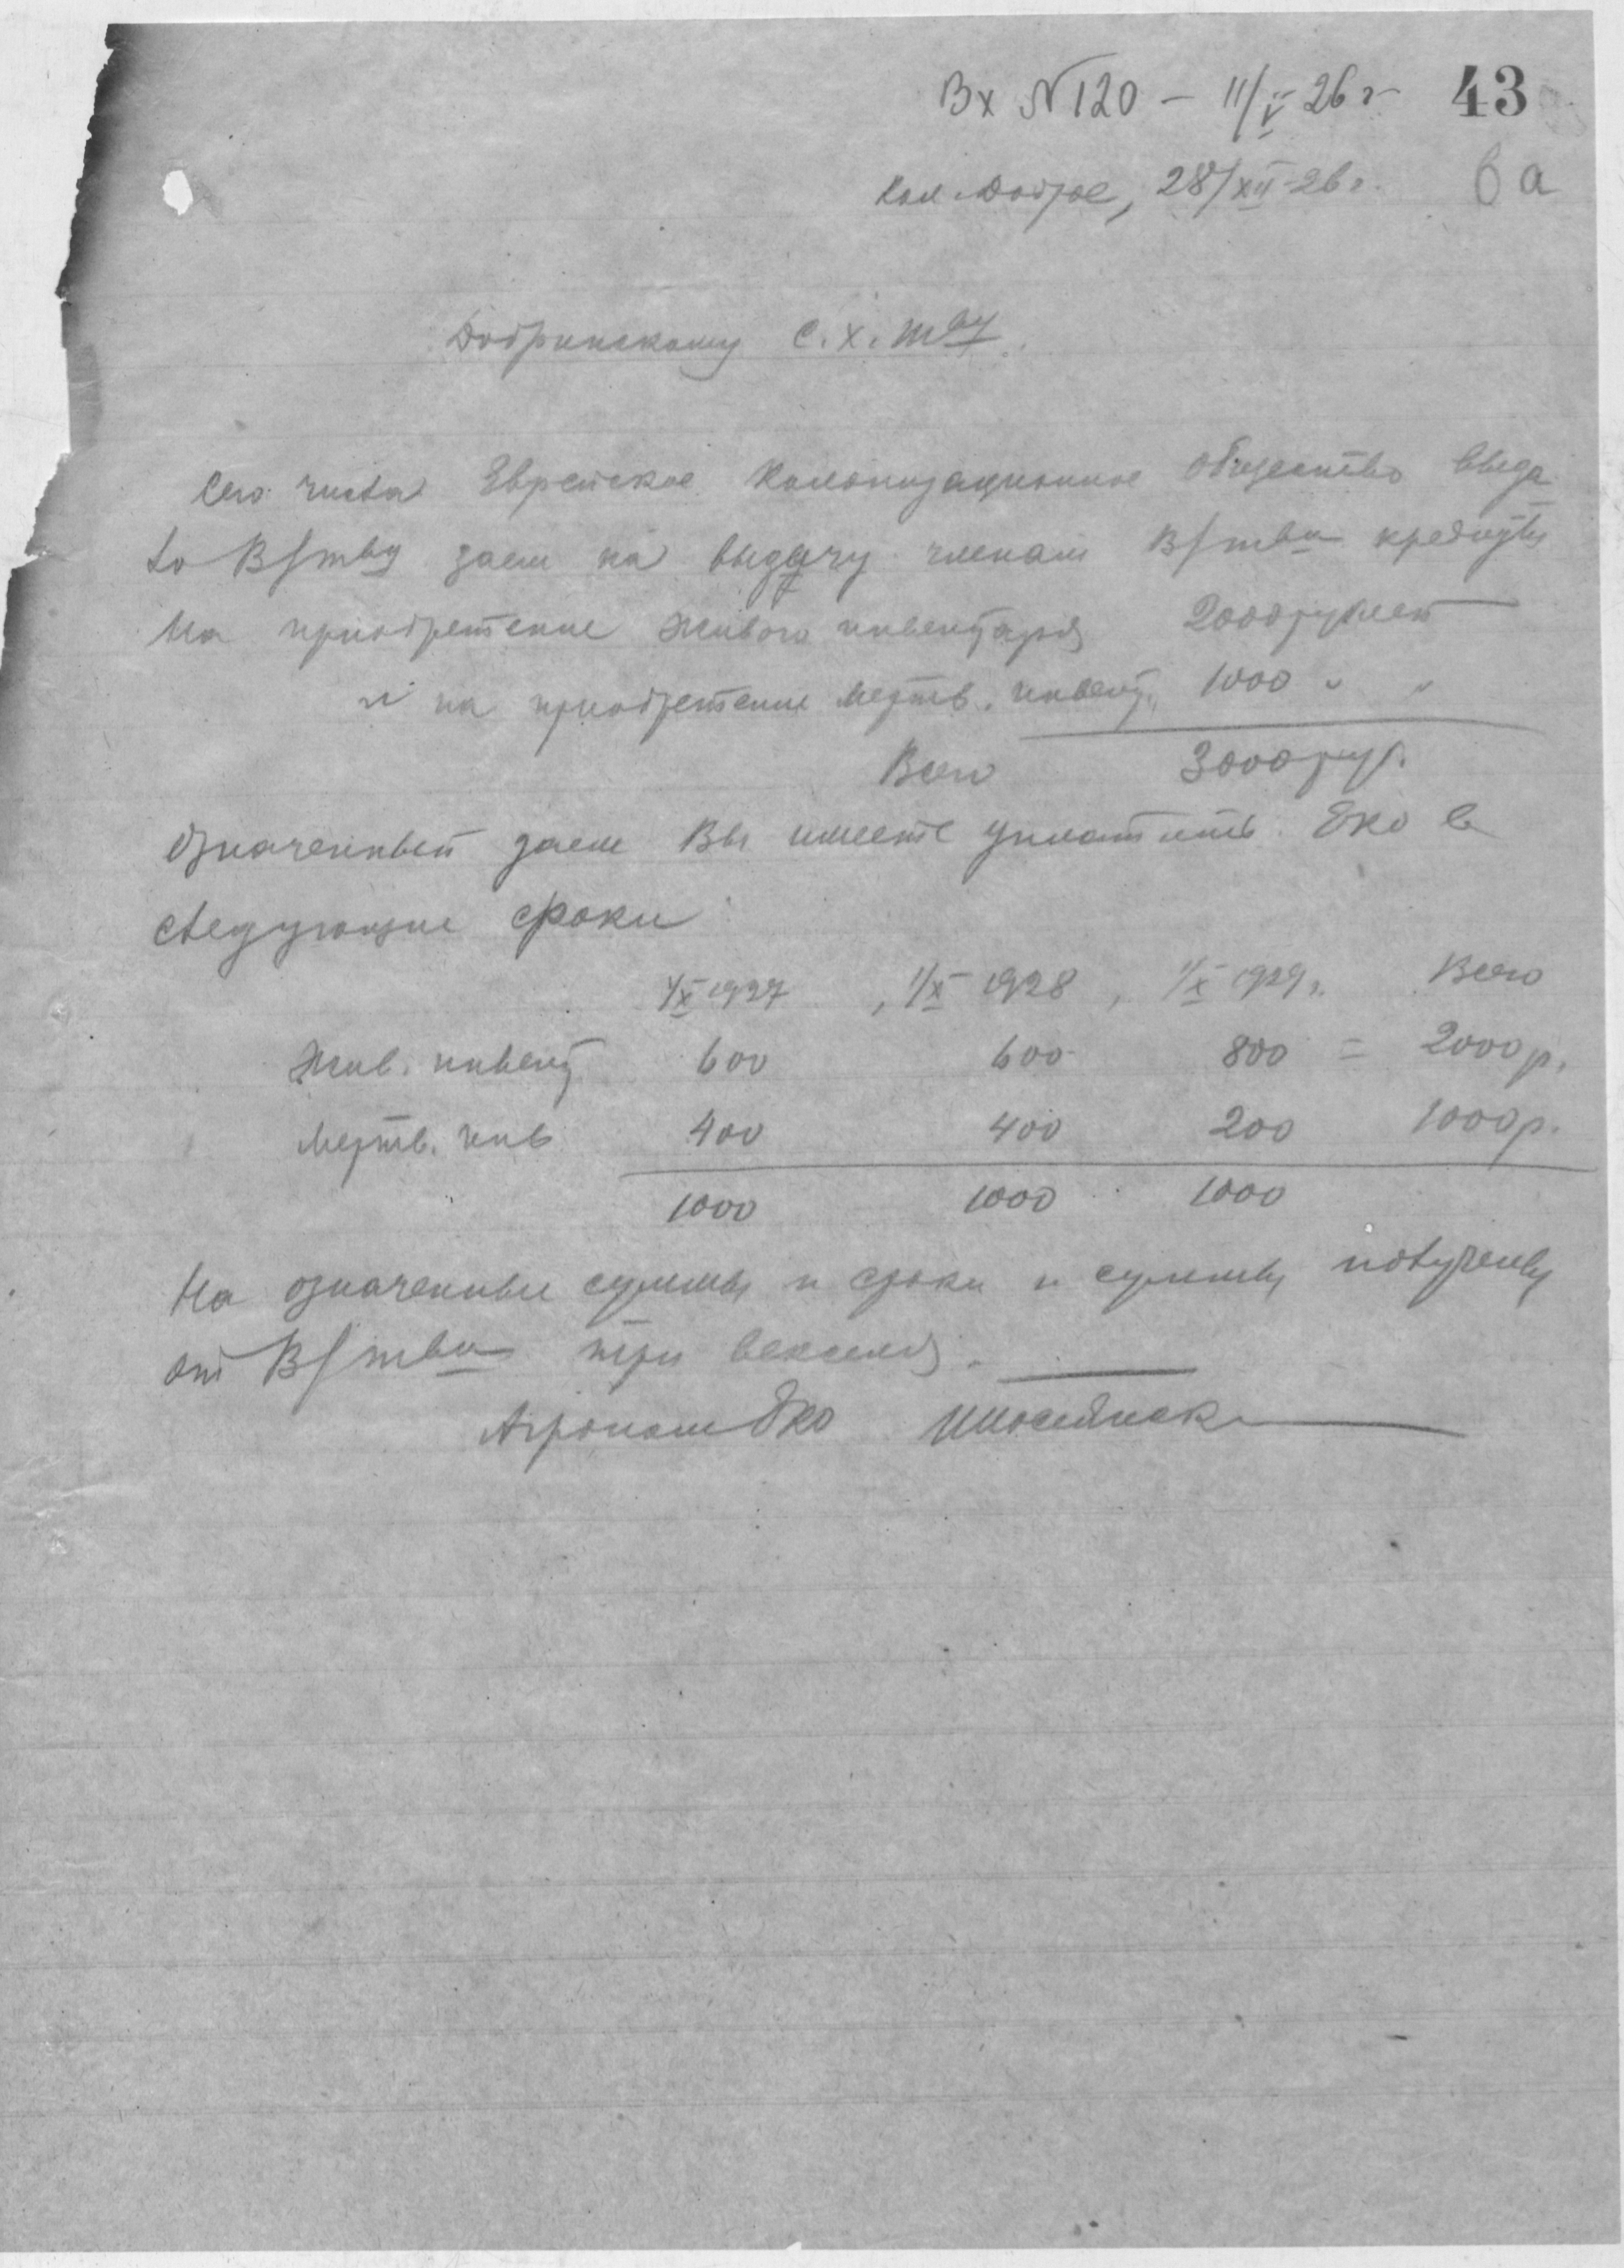 Вх №120 – 11/V 26 г 43
Кол. Доброе, 28/XII-26 г. 6а
Добринскому С.Х. Тву
Сего числа Еврейское Колонизационное Общество выда
ло В/тву заем на выдачу членам В/тва кредитов
На приобретение живого инвентаря 2000 рублей
" на приобретение мертв. инвент. 1000 " "
Всего 3000 руб.
Означенный заем Вы имеете уплатить Еко в
следующие сроки
1/X 1927, 1/X 1928, 1/X 1929 г. Всего
Жив. инвент 600 600 800 = 2000 р.
Мертв. инв 400 400 200 1000 р.
1000 1000 1000
На означенные суммы и сроки и суммы получены
от В/тва три векселя.
Агроном Еко